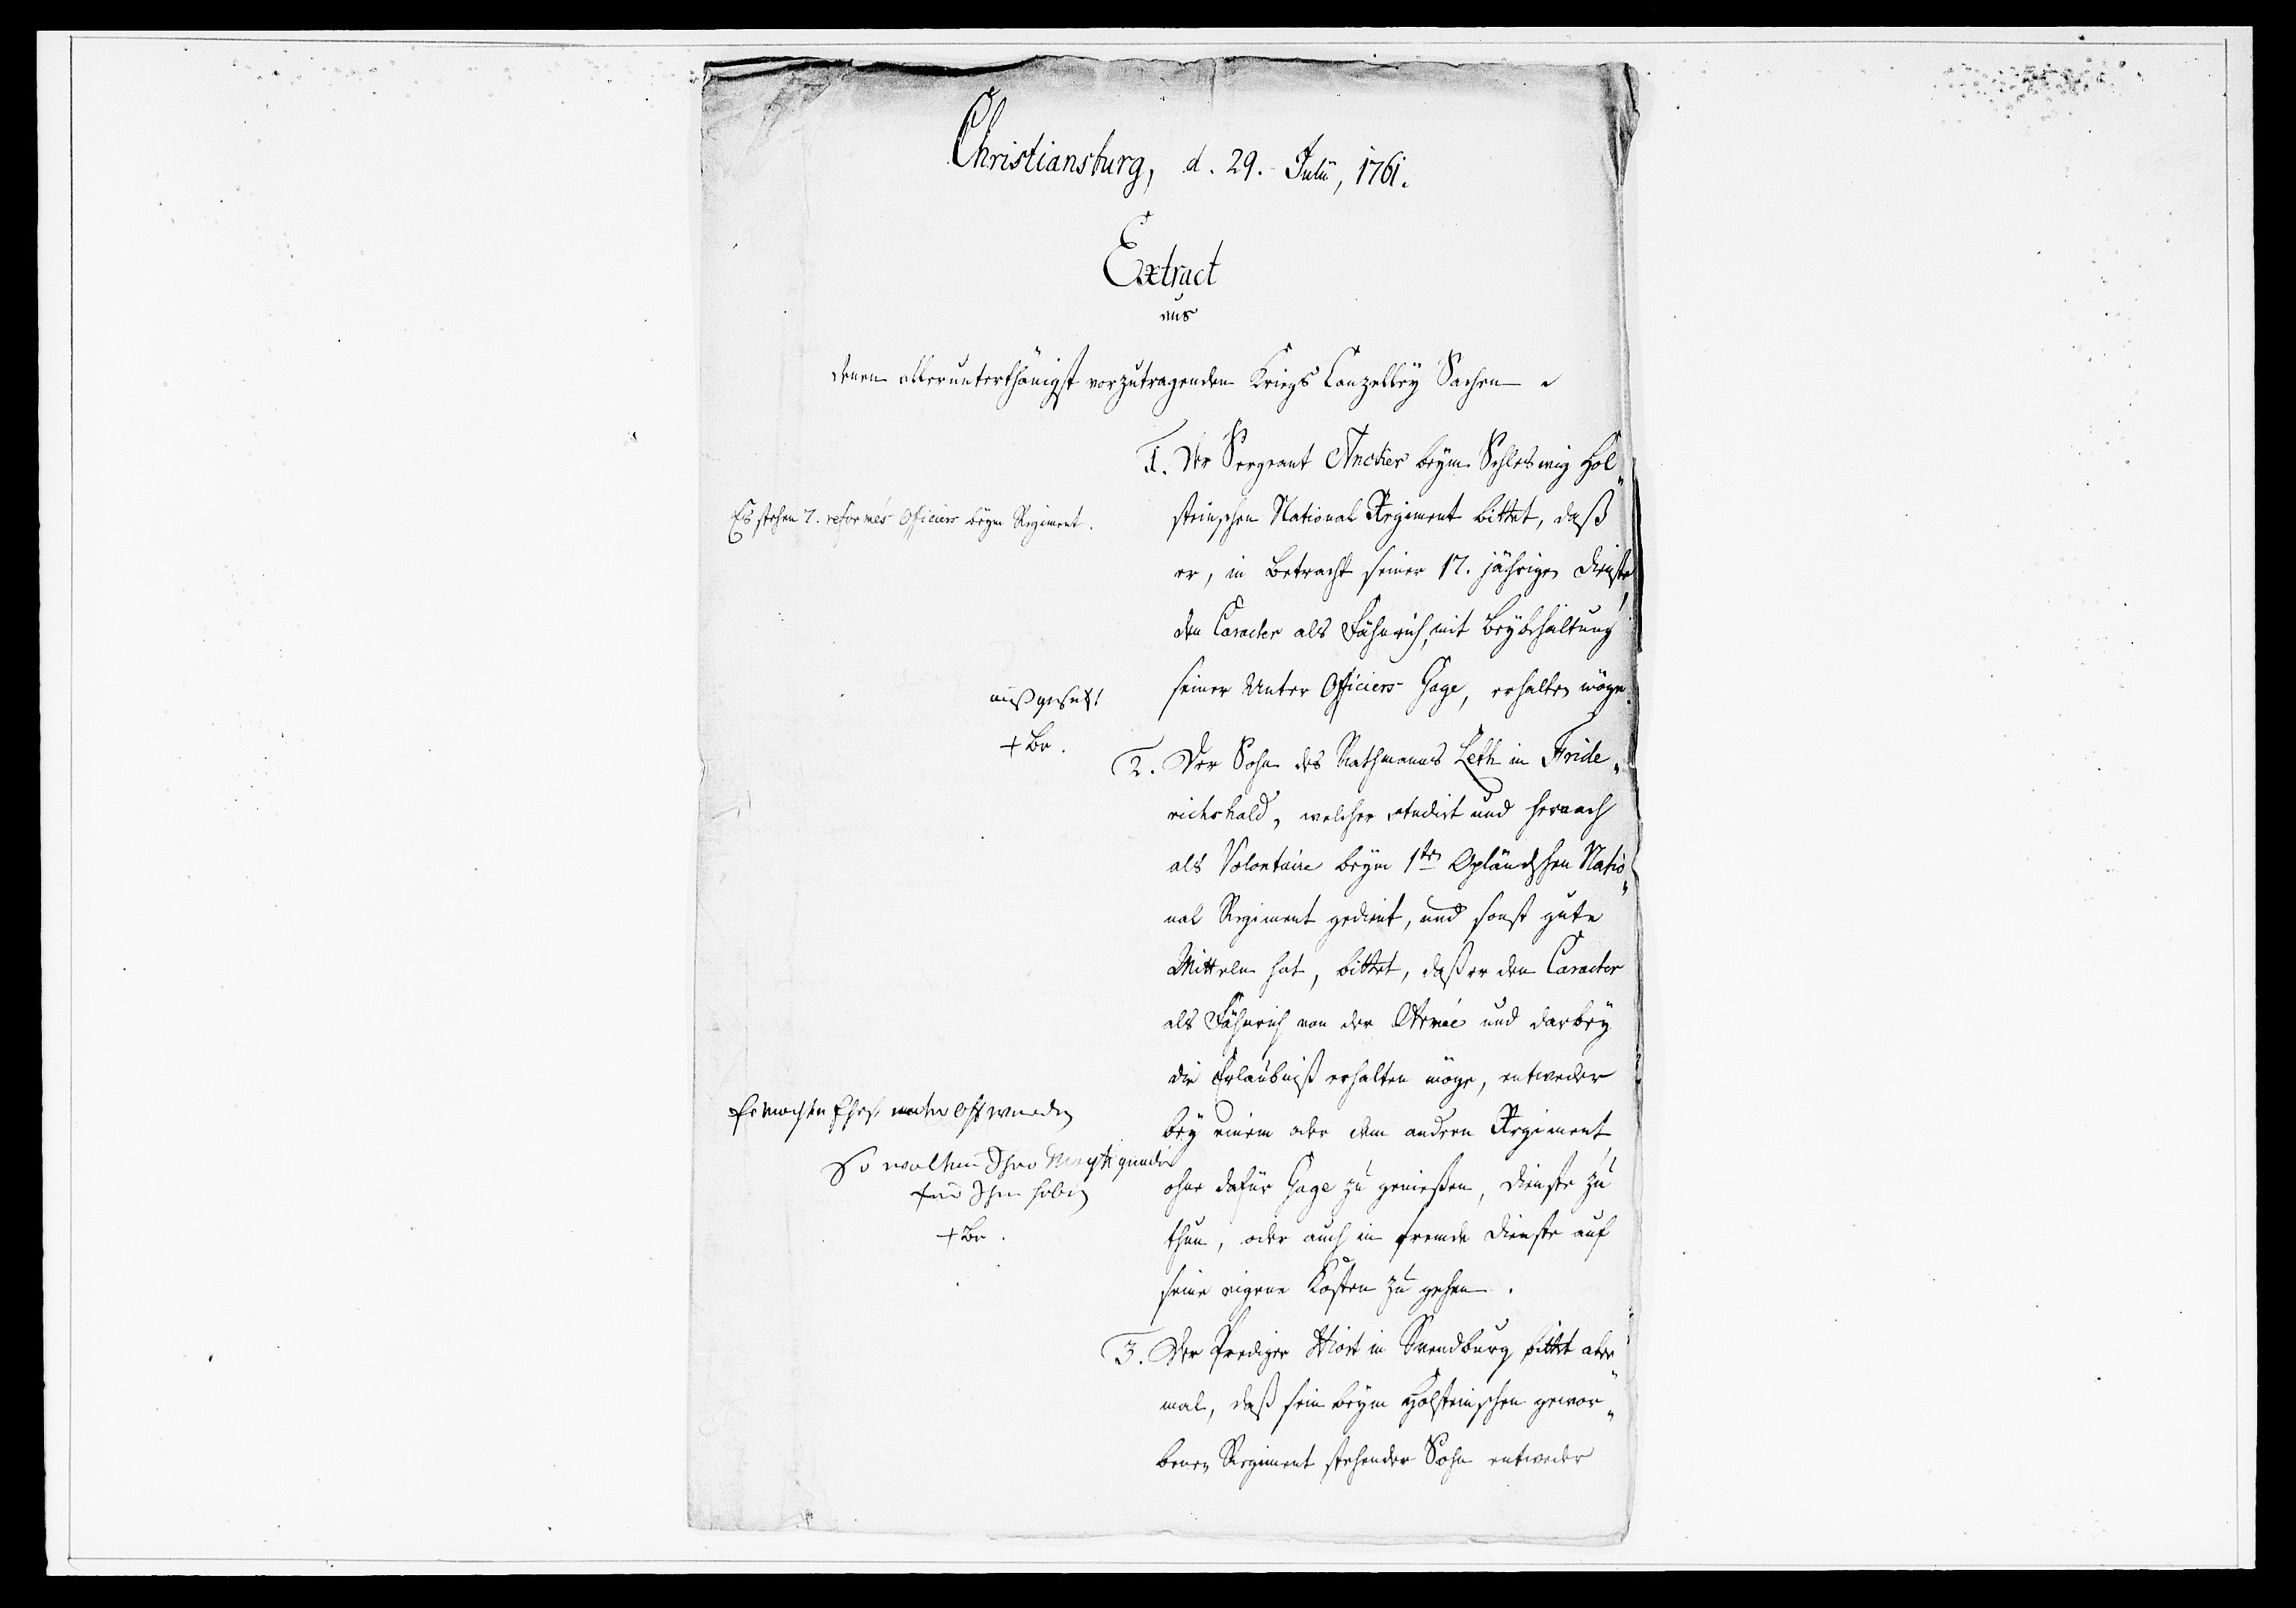 Christiansburg, d. 29. Julii, 1761.
Extract
aus
denen allerunterthänigst vorzutragenden Kriegs Canzelley Sachen
1. Der Sergeant Ancker beym Schleswig Hol„
steinschen National Regiment bittet, daß
er, in Betracht seiner 17. jährigen Dienste,
den Caracter als Fähnrich, mit Beybehaltung
seiner Unter Officiers Gage, erhalten möge.
Es stehen 7. reformés Officiers beym Regiment.
außgesetzt
+ Br.
2. Der Sohn des Rathmanns Leth in Fride„
richshald, welcher studirt und hernach
als Volontaire beym 1ten Opländschen Natio„
nal Regiment gedient, und sonst gute
Mitteln hat, bittet, daß er den Caracter
als Fähnrich von der Armée und darbey
die Erlaubniß erhalten möge, entweder
bey einem oder dem andern Regiment,
ohne dafür Gage zu genießen, Dienste zu
thun, oder auch in fremde Dienste auf
seine eigene Kosten zu gehen.
So wolten Ihro Maystt
+ Br.
3. Der Prediger Hiort in Svendburg bittet aber„
mal, daß sein beym Holsteinschen gewor„
benen Regiment stehender Sohn entweder